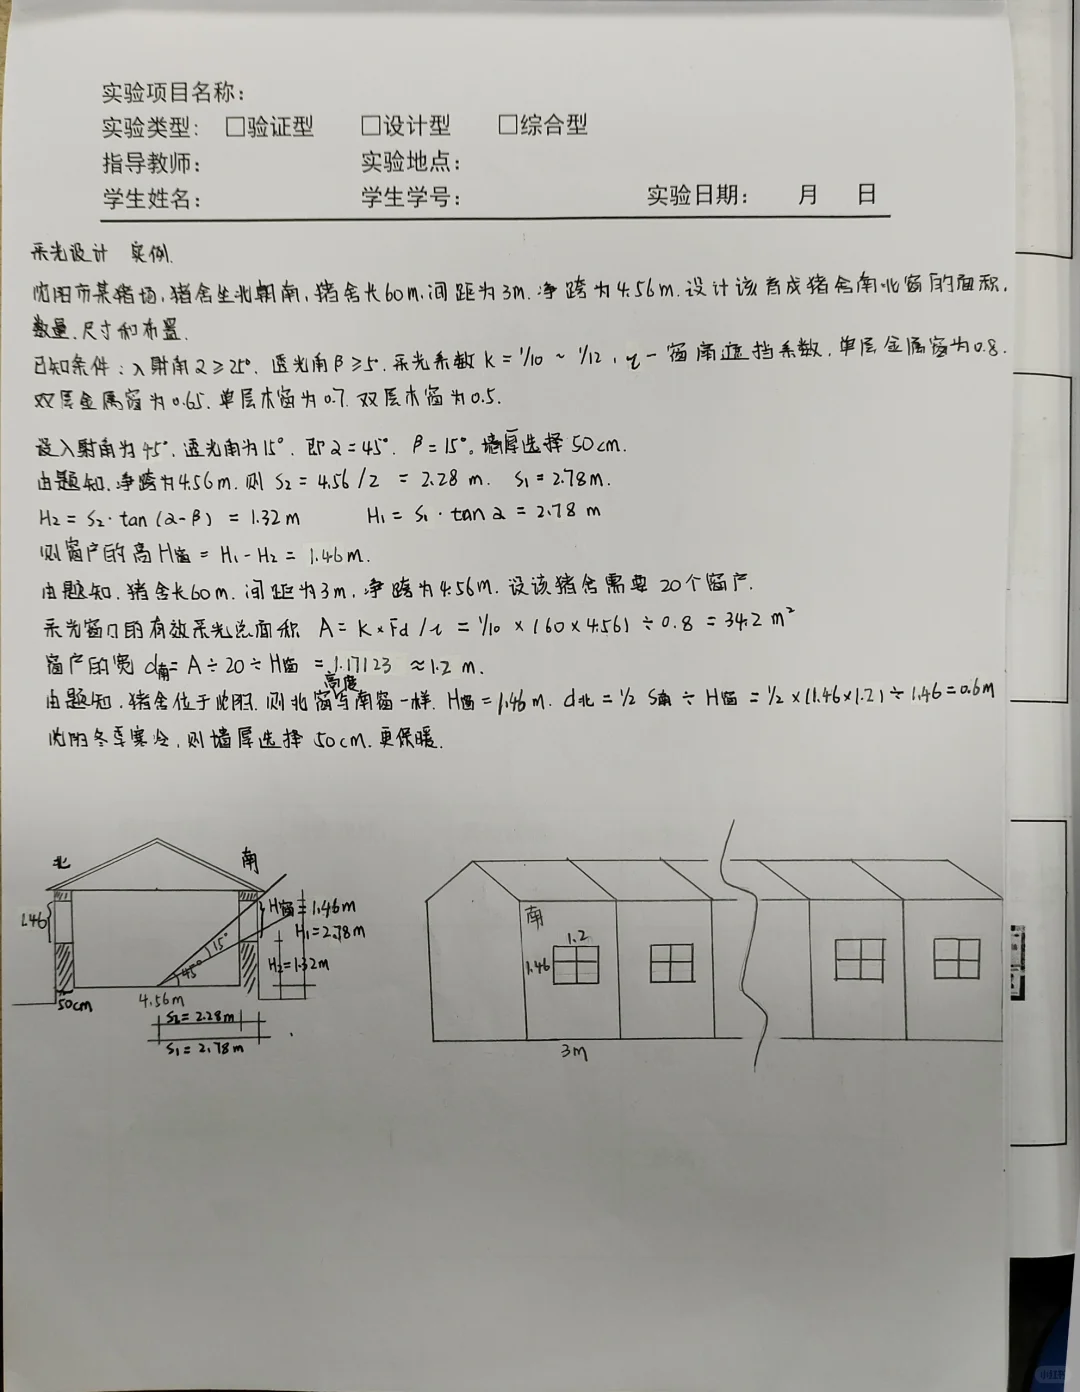 实验项目名称：
实验类型： □验证型 □设计型 □综合型
指导教师： 实验地点：
学生姓名： 学生学号： 实验日期： 月 日
采光设计 实例.
沈阳市某猪场,猪舍坐北朝南,猪舍长60m.间距为3m.净跨为4.56m.设计该育成猪舍南北窗的面积,
数量.尺寸和布置.
已知条件：入射角α≥25°.透光角β≥5°.采光系数K=1/10~1/12,τ—窗扇遮挡系数.单层金属窗为0.8.
双层金属窗为0.65.单层木窗为0.7.双层木窗为0.5.
设入射角为45°.透光角为15°.即α=45°.β=15°。墙厚选择50cm.
由题知.净跨为4.56m.则S₂=4.56/2=2.28m. S₁=2.78m.
H₂=S₂·tan(α-β)=1.32m H₁=S₁·tanα=2.78m
则窗户的高H窗=H₁-H₂=1.46m.
由题知.猪舍长60m.间距为3m,净跨为4.56m.设该猪舍需要20个窗户.
采光窗口的有效采光总面积 A=K×Fd/τ=1/10×(60×4.56)÷0.8=34.2m²
窗户的宽d南=A÷20÷H窗=1.17123≈1.2m.
高度
由题知.猪舍位于沈阳.则北窗与南窗一样.H窗=1.46m.d北=1/2 S南÷H窗=1/2×(1.46×1.2)÷1.46=0.6m
沈阳冬季寒冷,则墙厚选择50cm.更保暖.
北 南
1.46
H窗=1.46m
H₁=2.78m
15°
45°
H₂=1.32m
50cm
4.56m
S₂=2.28m
S₁=2.78m
南
1.2
1.46
3m
小红书